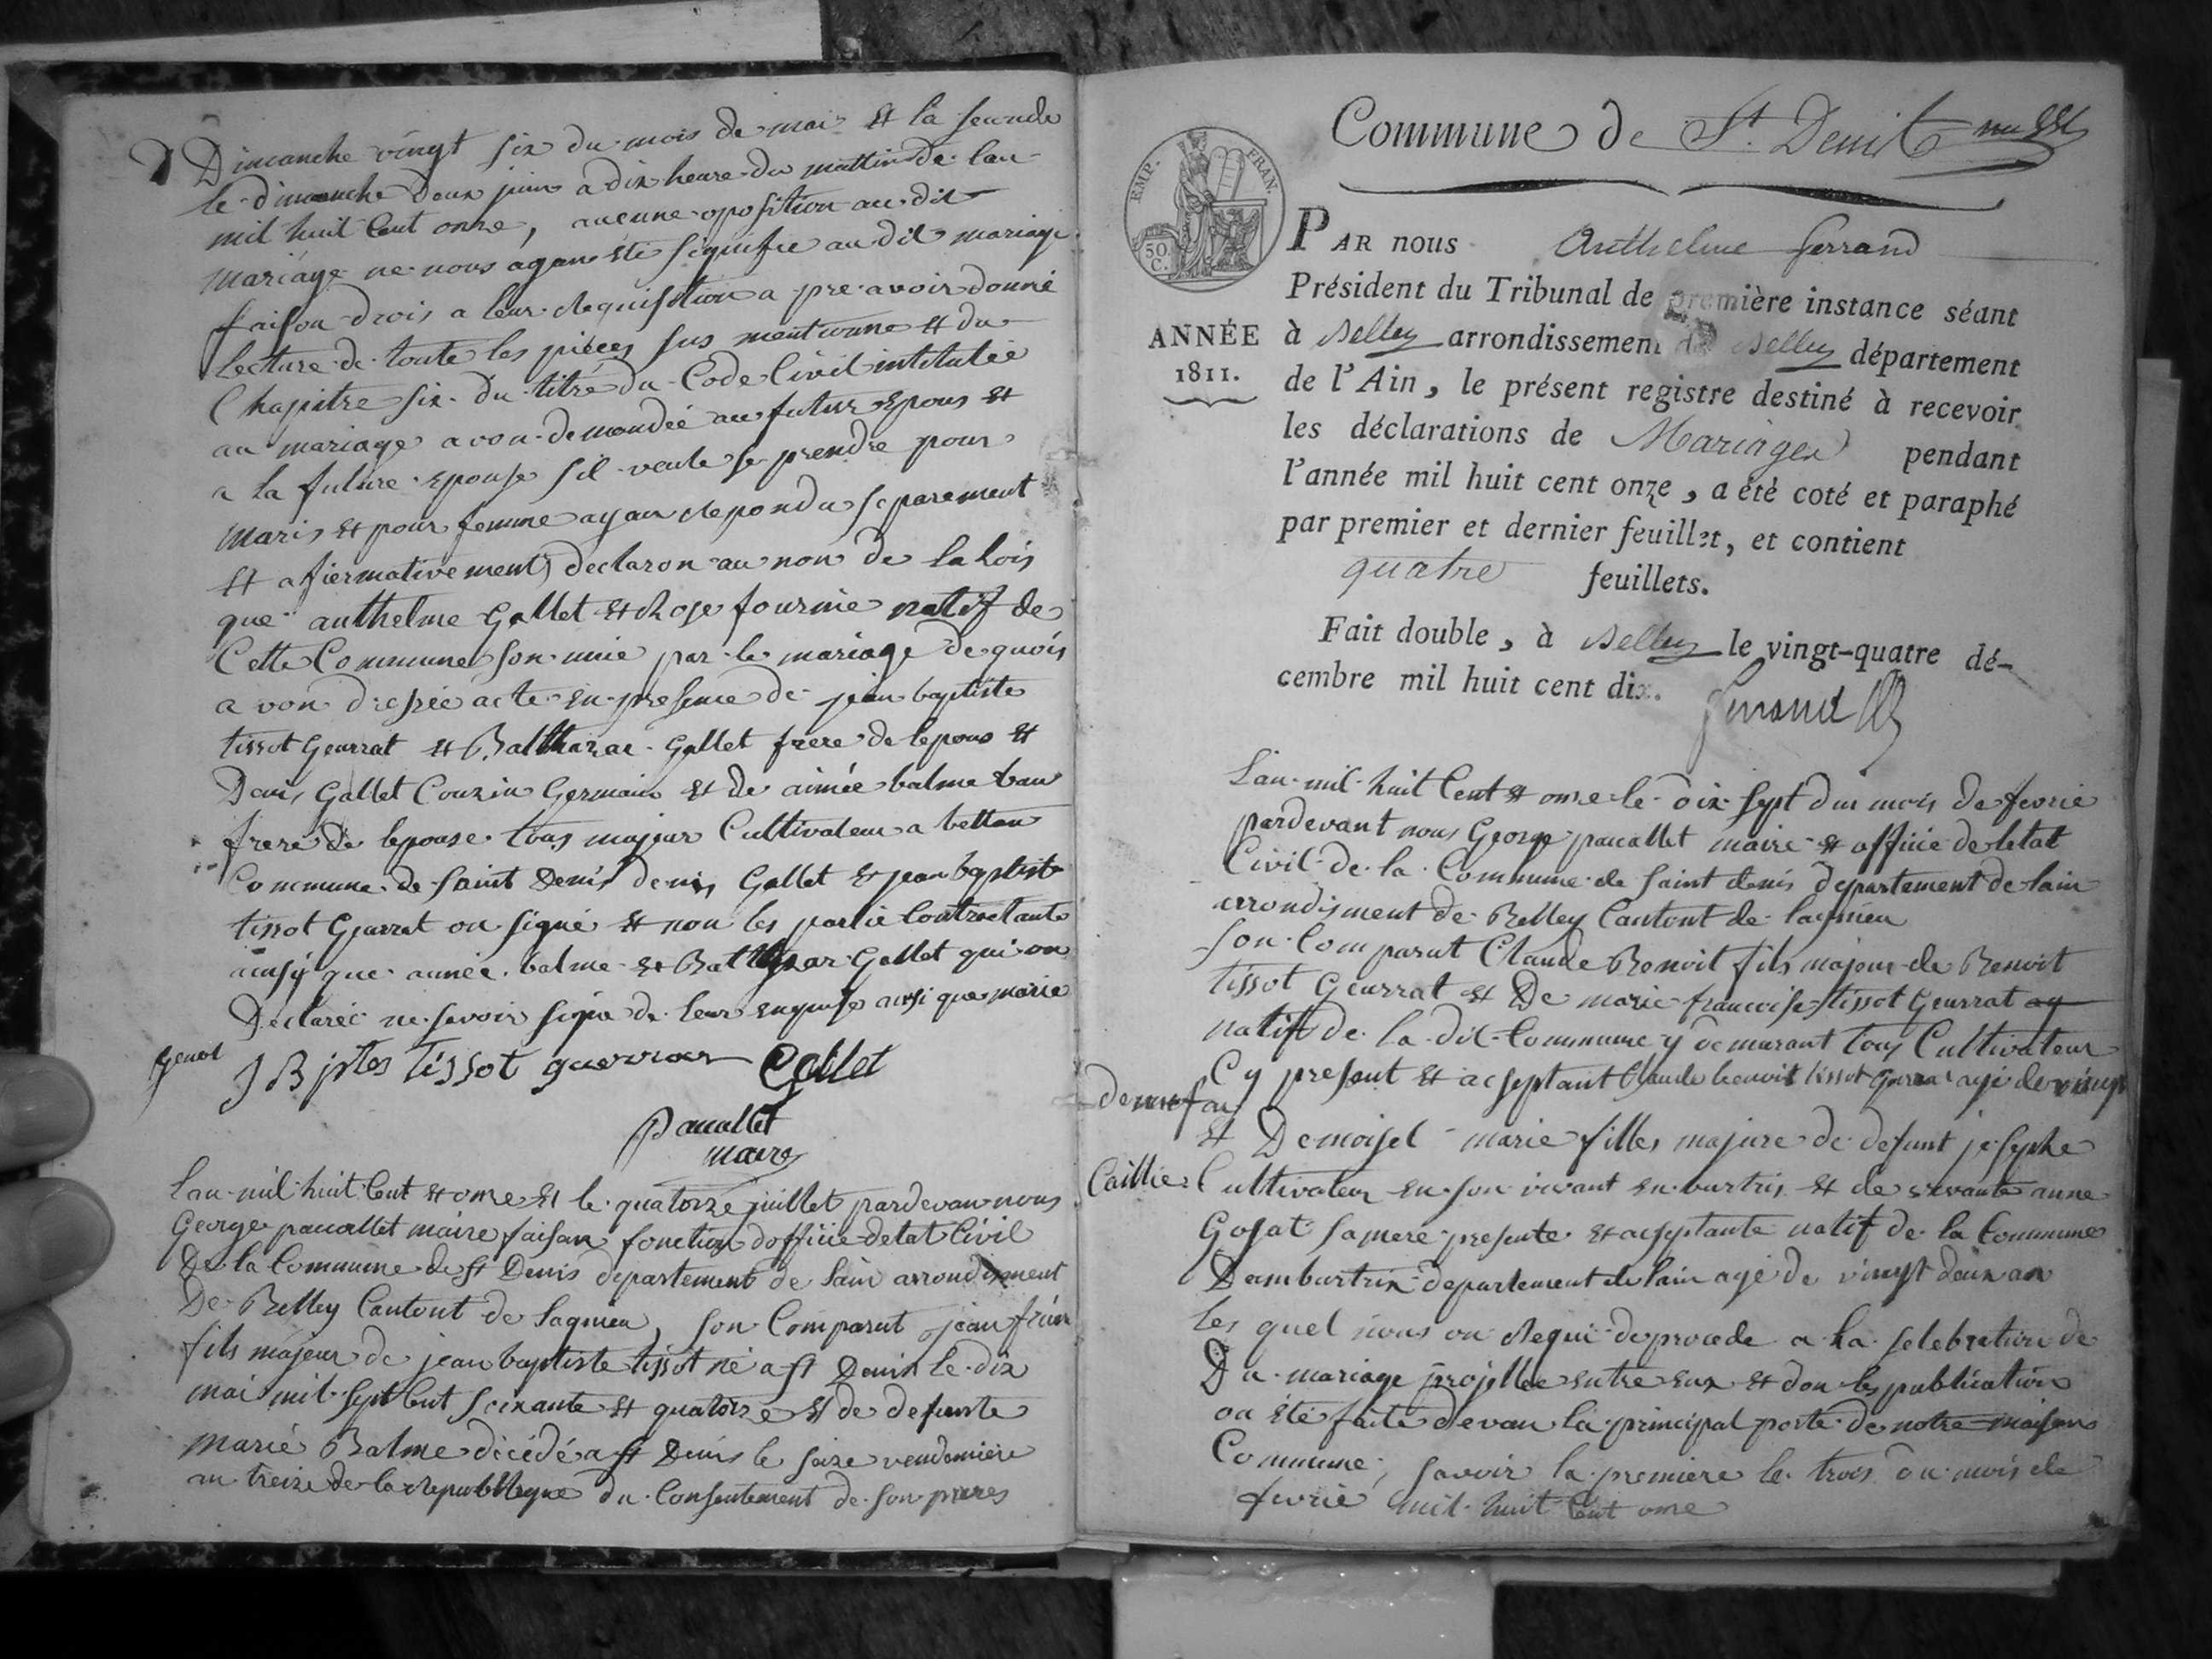 Dimanche vingt six du mois de mai et la seconde
le dimanche deux juin a dix heure du mattin de lan
mil huit Cent onze, aucune oposition au dit
mariage ne nous ayan été signifie au dit mariage
faison drois a leur requisition a pre avoir donné
Lecture de toute les pièces sus mentionne et du
Chapitre six du titre du Code Civil intitulée
au mariage avon demandée au futur epous et
a la future epouse sil veule se prendre pour
maris et pour femme ayan repondu separement
et afiermativement declaron au non de la lois
que anthelme Gallet et Rose fournie natif de
Cette Commune son unie par le mariage de quois
avon dressée acte en presence de jean baptiste
tissot Geurrat et Balthazar Gallet frere de lepous et
Denis Gallet Couzin Germain et de aimée balme bau
frere de lepouse tous majeur Cultivateur a bettan
Commune de Saint Denis denis Gallet et jean baptiste
tissot Geurrat on signé et non les partie Contractante
ainsy que aimée balme et Balthazar Gallet qui on
Declareé ne savoir signe de leur enquise ausi que marie
Genol J B ptes tissot guerrar Gallet
paucallet
maire
Lan mil huit Cent et onze et le quatorze juillet pardevan nous
George paucallet maire faisan fonction dofficie detat Civil
De la Commune de St Denis departement de lain arrondisment
De Belley Cantont de Lagnieu, son Comparut jean
fils majeur de jean baptiste tissot né a St Denis le dix
mai mil sept Cent soixante et quatorze et de defunte
marie Balme décédé a St Denis le seize vendemiere
an treize de la Republique du Consentement de son peres
Commune de St. Denis
EMP. FRAN.
50 C.
PAR nous Anthelme Ferrand
Président du Tribunal de première instance séant
ANNÉE à Belley arrondissement de Belley département
1811. de l'Ain, le présent registre destiné à recevoir
les déclarations de Mariages pendant
l'année mil huit cent onze, a été coté et paraphé
par premier et dernier feuillet, et contient
quatre feuillets.
Fait double, à Belley le vingt-quatre dé-
cembre mil huit cent dix.
Lan mil huit Cent et onze le dix sept du mois de fevrie
pardevant nous George paucallet maire et officie de letat
Civil de la Commune de saint denis departement de lain
arrondisment de Belley Cantont de lagnieu
son Comparut Claude Benoit fils majeur de Benoit
tissot Geurrat et De marie francoise tissot Geurrat ay
natif de la dit Commune y demurant tous Cultivateur
Cy present et acseptant Claude benoit tissot Geurrat agé de vingt
deneuf an
et Demoisel marie filles majure de defunt josephe
Caillie Cultivateur en son vivant en burtrix et de vivante anne
Gojat sa mere presente et acseptante natif de la Commune
Dambutrix departement de lain agé de vingt deux an
Les quel nous on requi de procede a la selebration de
Du mariage projettée entre eux et don les publication
on été faite devan la principal porte de notre maison
Commune; savoir la premiere le trois du mois de
fevrie mil huit Cent onze